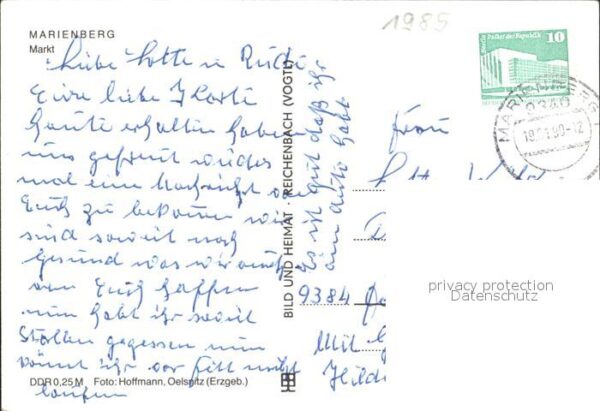 1985
MARIENBERG
Markt
Liebe Lotte u Rudi
Eure liebe Karte
heute erhalten haben
uns gefreut wieder
mal eine Nachricht von
Euch zu bekomen wir
sind soweit noch
gesund was wir auch
von Euch hoffen
nun habt ihr soviel
Stollen gegessen nun
könnt ihr vor Fett nicht
laufen
Es ist gut daß ihr
ein Auto habt
DDR 0,25 M Foto: Hoffmann, Oelsnitz (Erzgeb.)
BILD UND HEIMAT · REICHENBACH (VOGTL)
Berlin Palast der Republik
10
DDR
MARIENBERG
9340
-12
Frau
9384
Mit
Hild
privacy protection
Datenschutz